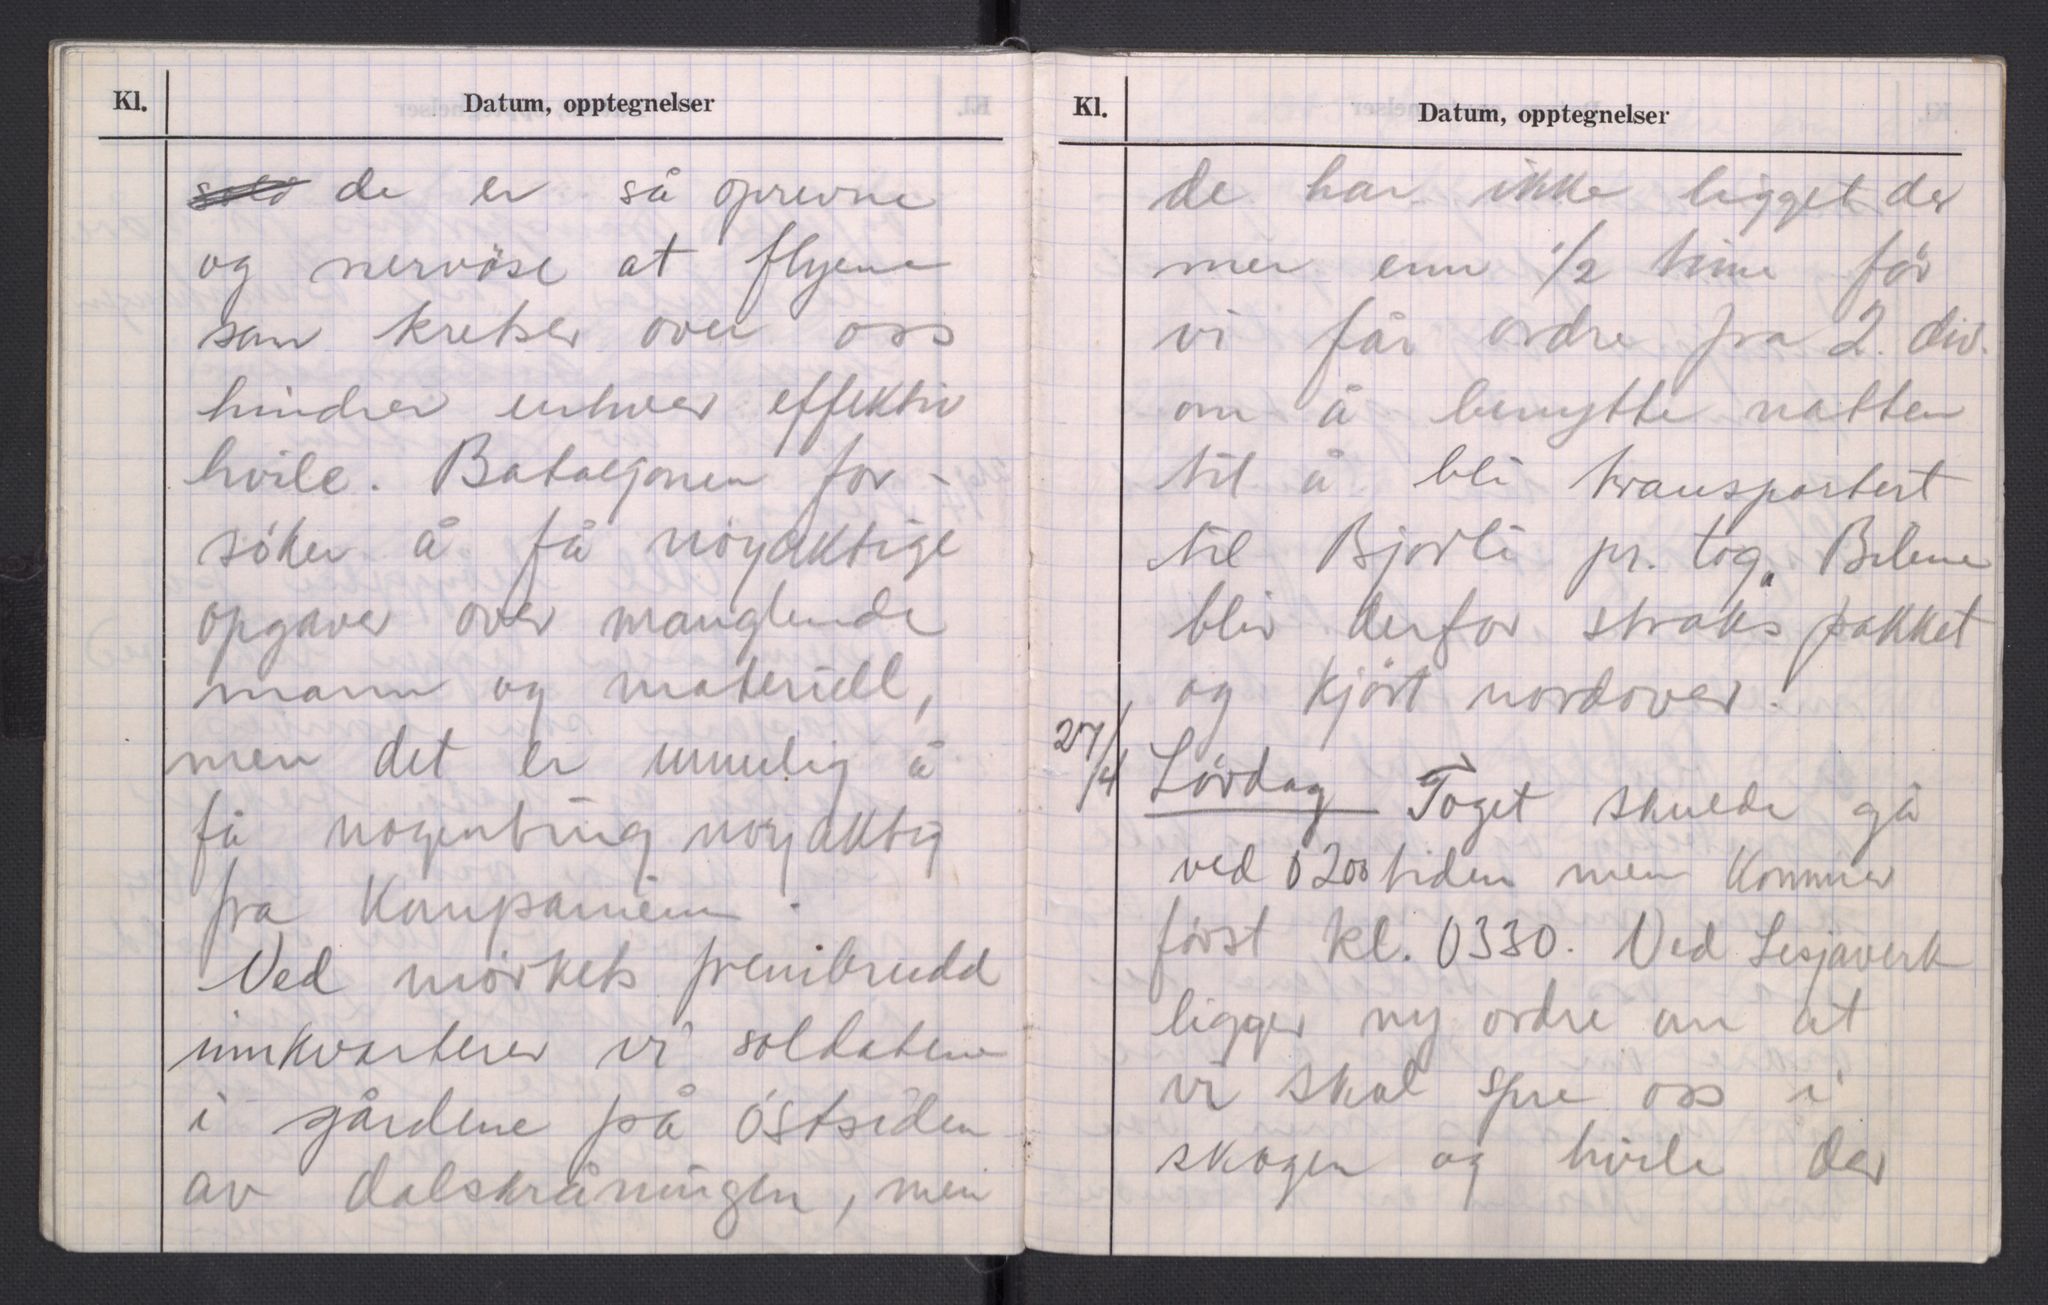 Kl. Datum, opptegnelser
de er så oprevne
og nervöse at flyene
som kretser over oss
hindrer enhver effektiv
hvile. Bataljonen for-
söker å få nöyaktige
opgaver over manglende
mann og materiell,
men det er umulig å
få nogenting nöyaktig
fra Kompaniene.
Ved mörkets frembrudd
innkvarterer vi soldatene
i gårdene på östsiden
av dalskråningen, men
Kl. Datum, opptegnelser
de har ikke ligget der
mer enn 1/2 time för
vi får ordre fra 2. div.
om å benytte natten
til å bli transportert
til Bjorli pr. tog. Bilene
blir derfor straks pakket
og kjört nordover.
27/4 Lördag Toget skulde gå
ved 0200 tiden men kommer
först kl. 0330. Ved Lesjaverk
ligger ny ordre om at
vi skal spre oss i
skogen og hvile der